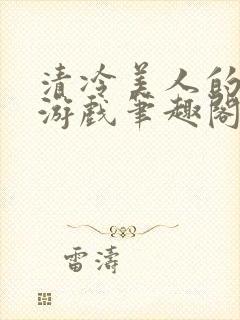 清冷美人的
游戏笔趣阁
雷涛